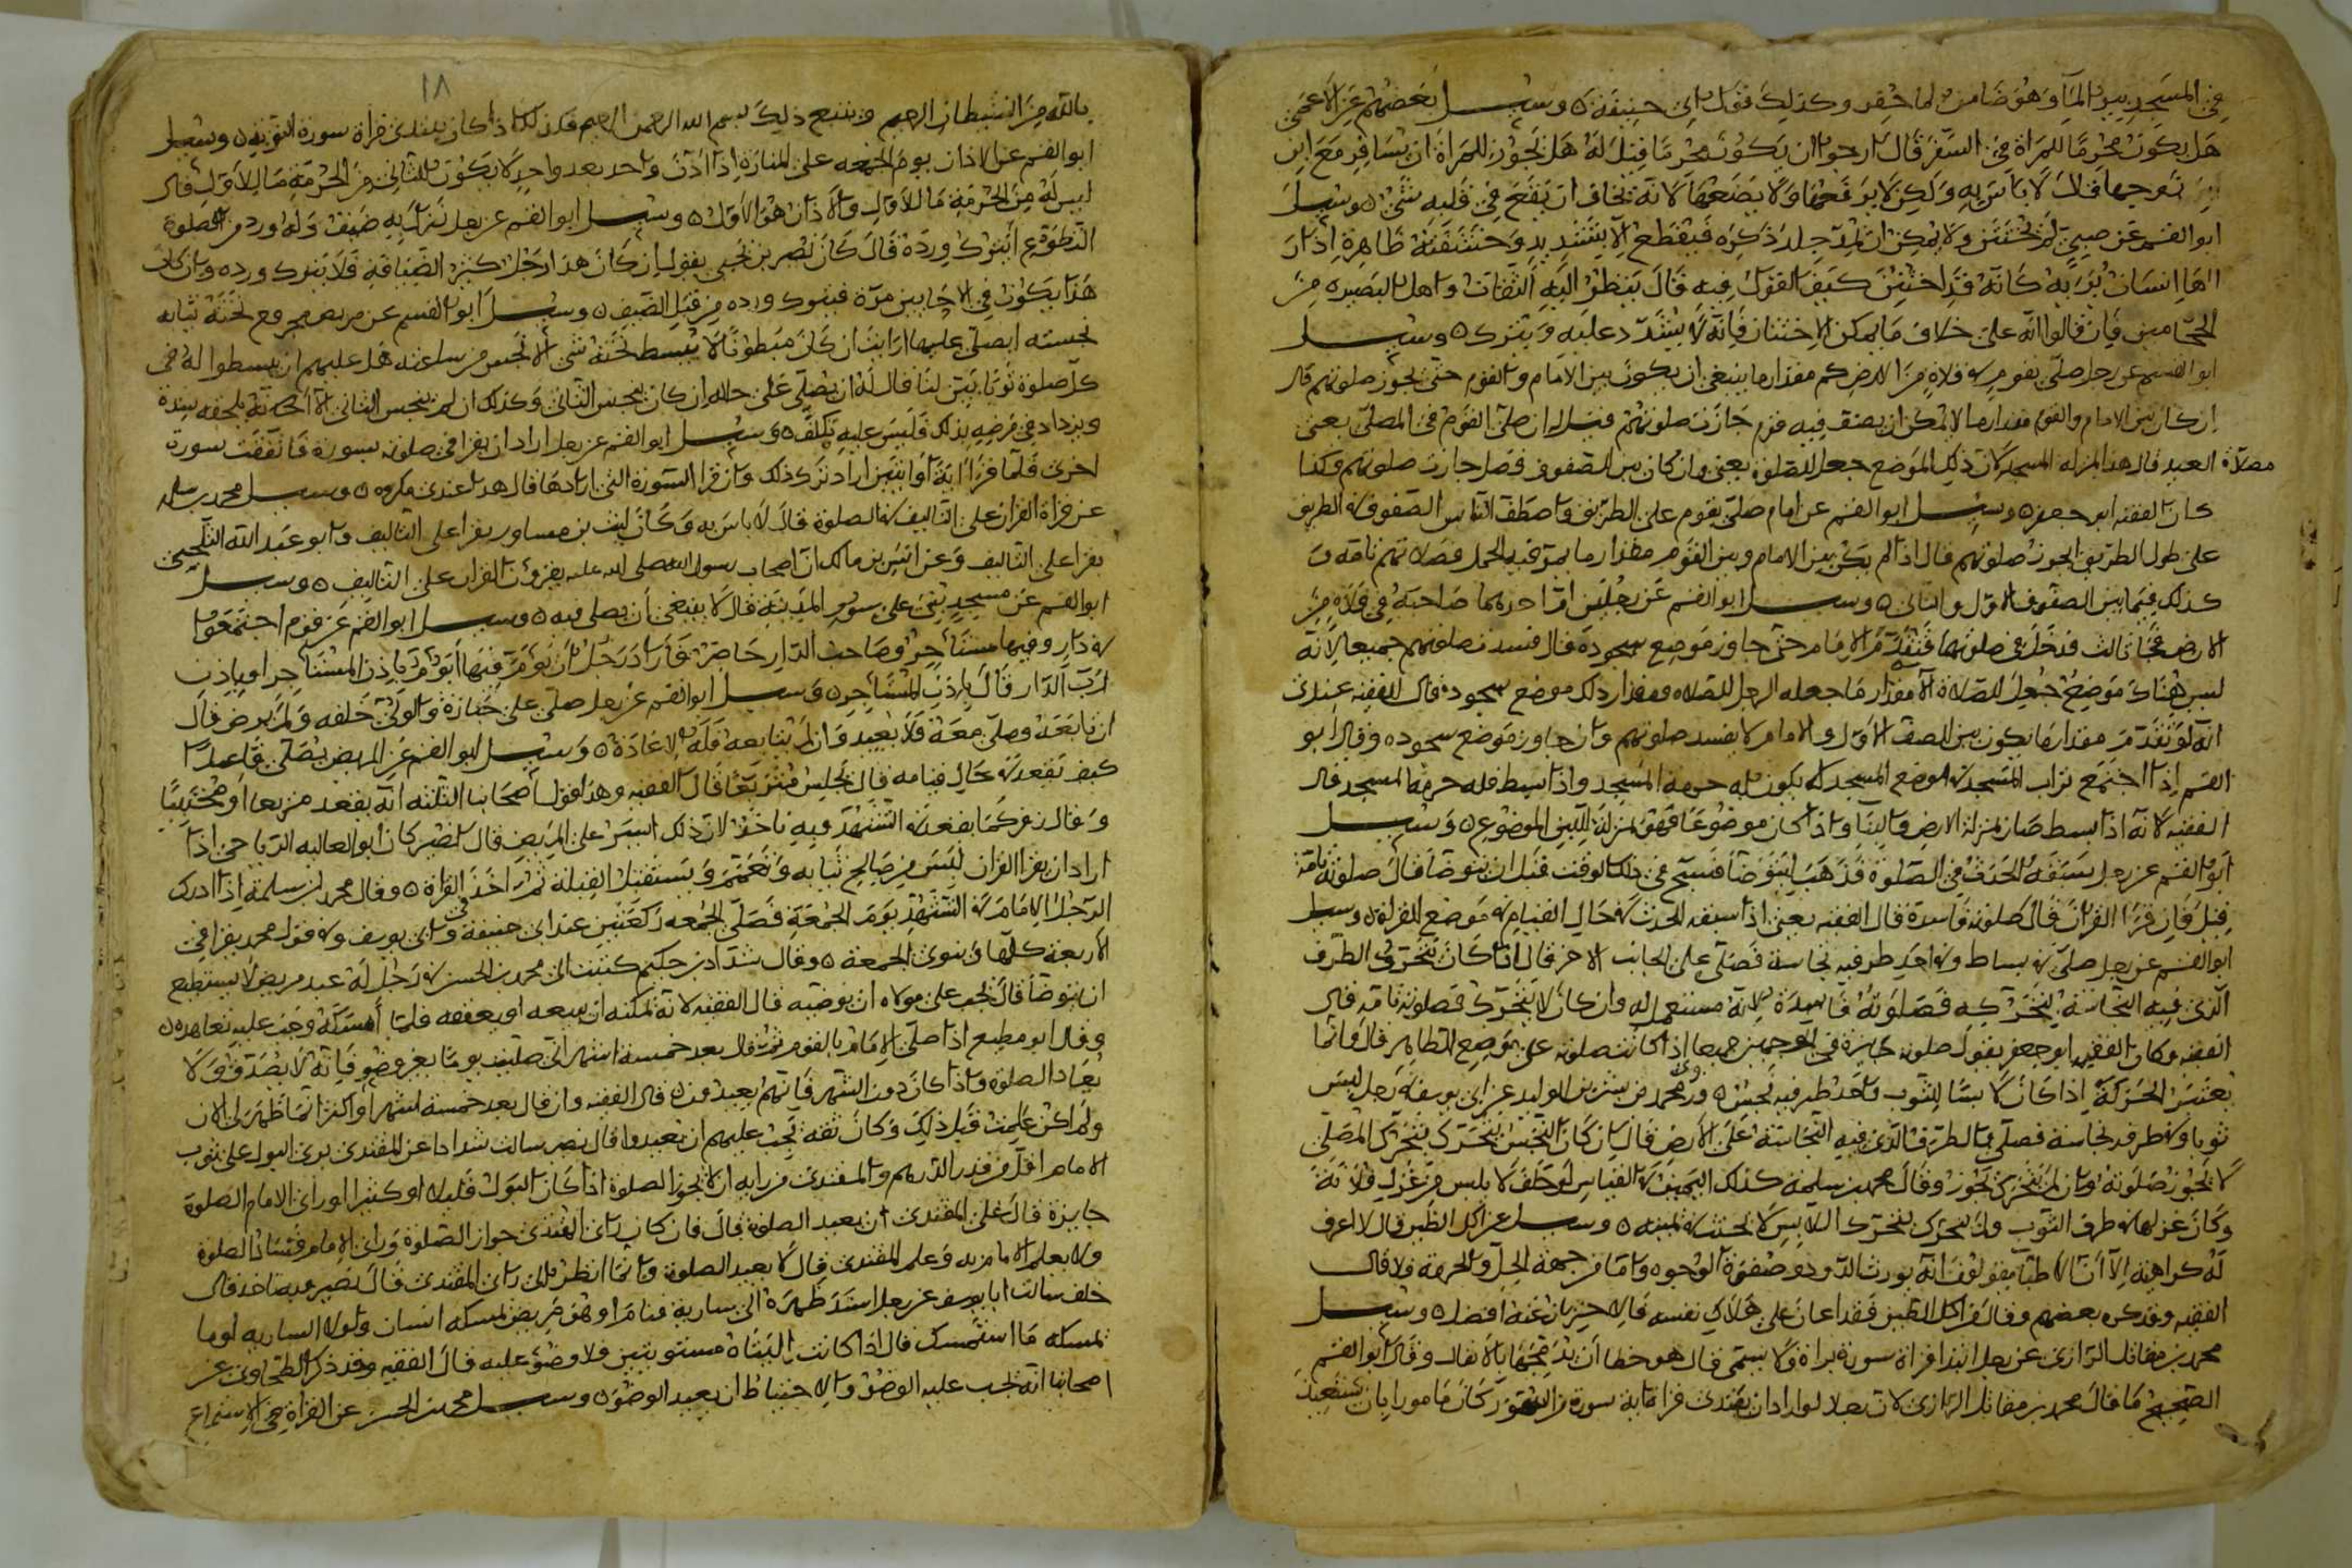 في المسجد بيد الما وهو ضامن لما حفر وكذلك قول ابي حنيفة ه وسيل بعضهم عن الاعمى
هل يكون محرما للمراة في السفر قال ارجوا ان يكون محرما قيل له هل يجوز للمراة ان تسافر مع ابن
زوجها قال لا باس به ولكن لا يرفعها ولا يضعها لانه يخاف ان يقع في قلبه شئ ه وسيل
ابو القسم عن صبي لم يختتن ولا يمكن ان يمد جلد ذكره فيقطع الا بتشديد وحشفته ظاهرة اذا را
اها انسان يرا به كانه قد اختتن كيف القول فيه قال ينظر اليه الثقات واهل البصيره من
الحجامين فان قالوا انه على خلاف ما يمكن الاختتان فانه لا يشدد عليه ويترك ه وسيل
ابو القسم عن رجل صلى بقوم في فلاة من الارض كم مقدار ما ينبغي ان يكون بين الامام والقوم حتى يجوز صلوتهم قال
ان كان بين الامام والقوم مقدار ما لا يمكن ان يصف فيه قوم جازت صلوتهم قيل له ان صلى القوم في المصلى يعني
مصلاة العيد قال هذا بمنزلة المسجد لان ذلك الموضع جعل للصلوة يعني وان كان بين الصفوف فصل جازت صلوتهم وكذا
كان الفقيه ابو جعفر ه وسيل ابو القسم عن امام صلى بقوم على الطريق واصطف الناس الصفوف في الطريق
على طول الطريق ايجوز صلوتهم قال اذا لم يكن بين الامام وبين القوم مقدار ما يمر فيه الجمل فصلاتهم تامة و
كذلك فيما بين الصفوف الاول والثاني ه وسيل ابو القسم عن رجلين ام احدهما صاحبه في فلاة من
الارض فجا ثالث فدخل في صلوتهما فتقدم الامام حتى جاوز موضع سجوده قال فسدت صلوتهم جميعا لانه
ليس هناك موضع جعل للصلاة الا مقدار ما جعله الرجل للصلاه ومقدار ذلك موضع سجوده قال الفقيه عندي
انه لو تقدم مقدار ما يكون بين الصف الاول والامام لا يفسد صلوتهم وان جاوز موضع سجوده وقال ابو
القسم اذا اجتمع تراب المسجد في موضع المسجد لا يكون له حرمة المسجد واذا بسط فله حرمة المسجد قال
الفقيه لانه اذا بسط صار بمنزلة الارض والبنا واذا كان موضوعا فهو بمنزلة اللبن الموضوع ه وسيل
ابو القسم عن رجل سبقه الحدث في الصلوة فذهب ليتوضا فسبح في ذلك الوقت قبل ان يتوضا قال صلوته تامة
قيل فان قرا القران قال صلوته فاسدة قال الفقيه يعني اذا سبقه الحدث في حال القيام في موضع القراة ه وسيل
ابو القسم عن رجل صلى في بساط وفي احد طرفيه نجاسة فصلى على الجانب الاخر قال اذا كان يتحرك الطرف
الذي فيه النجاسة بتحركه فصلوته فاسدة لانه مستعمل له وان كان لا يتحرك فصلوته تامة قال
الفقيه وكان الفقيه ابو جعفر يقول صلوته جايزة في الوجهين جميعا اذا كانت صلوته على موضع الطاهر قال وانما
يعتبر الحركة اذا كان لابسا للثوب واحد طرفيه نجس ه وروى محمد بن بشر بن الوليد عن ابي يوسف في رجل لبس
ثوبا وفي طرفه نجاسة فصلى بالطرف الذي فيه النجاسة على الارض قال ان كان النجس يتحرك بتحرك المصلي
لا يجوز صلوته وان لم يتحرك يجوز وقال محمد بن سلمة كذلك اليمين في القياس لو حلف لا يلبس من غزل فلانة
وكان غزلها في طرف الثوب ولم يتحرك بتحرك اللابس لا يحنث في يمينه ه وسيل عن اكل الطين قال لا اعرف
له كراهية الا ان الاطبا يقولون انه يورث الدود وصفرة الوجوه واما من جهة الحل والحرمة فلا قال
الفقيه وقد كره بعضهم وقال من اكل الطين فقد اعان على هلاك نفسه فالاحتراز عنه افضل ه وسيل
محمد بن مقاتل الرازي عن رجل ابتدا قراة سورة براة ولا يسمي قال هو خطا ان يدمجها بالانفال وقال ابو القسم
الصحيح ما قال محمد بن مقاتل الرازي لان رجلا لو اراد ان يبتدئ قراة اية سورة من السور كان مامورا بان يستعيذ
١٨
بالله من الشيطان الرجيم ويتبع ذلك بسم الله الرحمن الرحيم فكذلك اذا كان يبتدئ قراة سورة التوبة ه وسيل
ابو القسم عن الاذان يوم الجمعه على المنارة اذا اذن واحد بعد واحد لا يكون للثاني من الحرمة ما للاول قال
ليس له من الحرمة ما للاول والاذان هو الاول ه وسيل ابو القسم عن رجل نزل به ضيف وله ورد من الصلوة
التطوع ايترك ورده قال كان نصر بن يحيى يقول ان كان هذا رجل كثير الضيافة فلا يترك ورده وان كان
هذا يكون في الاحايين مرة فيترك ورده من قبل الضيف ه وسيل ابو القسم عن مريض مجروح تحته ثيابه
نجسته ايصلى عليها ارايت ان كان مبطونا لا يبسط تحته شئ الا نجس من ساعته هل عليهم ان يبسطوا له في
كل صلوة ثوبا بين لنا قال له ان يصلي على حاله ان كان ينجس الثاني وكذلك ان لم ينجس الثاني الا انه يلحقه شدة
ويزداد مرضه بذلك فليس عليه تكلف ه وسيل ابو القسم عن رجل اراد ان يقرا في صلوته بسورة فاتفقت سورة
اخرى فلما قرا اية او ايتين اراد ترك ذلك وان قرا السورة التي ارادها قال هذا عندي مكروه ه وسيل محمد بن سلمة
عن قراة القران على التاليف في الصلوة قال لا باس به وكان ليث بن مساور يقرا على التاليف وابو عبد الله الثلجي
يقرا على التاليف وعن انس بن مالك ان اصحاب رسول الله صلى الله عليه يقرون القران على التاليف ه وسيل
ابو القسم عن مسجد بني على سور المدينة قال لا ينبغي ان يصلى فيه ه وسيل ابو القسم عن قوم اجتمعوا
في دار وفيها مستاجر وصاحب الدار حاضر فاراد رجل ان يؤم فيها ايؤم باذن المستاجر او باذن
رب الدار قال باذن المستاجر ه وسيل ابو القسم عن رجل صلى على جنازة والولي خلفه ولم يرض قال
ان تابعه وصلى معه فلا يعيد وان لم يتابعه فله الاعادة ه وسيل ابو القسم عن المريض يصلي قاعدا
كيف يقعد في حال قيامه قال يجلس متربعا قال الفقيه وهذا قول اصحابنا الثلثة انه يقعد متربعا او محتبيا
وقال زفر كما يقعد في التشهد وبه ناخذ لان ذلك ايسر على المريض قال نصير كان ابو العاليه الرياحي اذا
اراد ان يقرا القران لبس من صالح ثيابه وتعمم ويستقبل القبلة ثم اخذ في القراة ه وقال محمد بن سلمة اذا ادرك
الرجل الامام في التشهد يوم الجمعة فصلى الجمعه ركعتين عند ابي حنيفة وابي يوسف وفي قول محمد يقرا في
الاربعة كلها وينوي الجمعة ه وقال شداد بن حكيم كتبت الى محمد بن الحسن في رجل له عبد مريض لا يستطيع
ان يتوضا قال يجب على مولاه ان يوضيه قال الفقيه لانه يمكنه ان يبيعه او يعتقه فلما امسكه وجب عليه تعاهده ه
وقال ابو مطيع اذا صلى الامام بالقوم ثم قال بعد خمسة اشهر اني صليت يوما بغير وضو فانه لا يصدق ولا
يعاد الصلوة واذا كان دون الشهر فانهم يعيدون ه قال الفقيه وان قال بعد خمسة اشهر او اكثر انما ظهر لي الان
ولم اكن علمت قبل ذلك وكان ثقة يجب عليهم ان يعيدوا قال نصير سالت شدادا عن المقتدي يرى البول على ثوب
الامام اقل من قدر الدرهم والمقتدي من رايه ان لا يجوز الصلوة اذا كان البول قليلا او كثيرا وراى الامام الصلوة
جايزة قال على المقتدي ان يعيد الصلوة قال فان كان راى المقتدي جواز الصلوة وراى الامام فساد الصلوة
ولا يعلم الامام به وعلم المقتدي قال لا يعيد الصلوة وانما انظر الى راى المقتدي قال نصير وبه ناخذ قال
خلف سالت ابا يوسف عن رجل استند ظهره الى سارية فنام او هو مريض يمسكه انسان ولولا السارية او ما
يمسكه ما استمسك قال اذا كانت اليتاه مستويتين فلا وضوء عليه قال الفقيه وقد ذكر الطحاوي عن
اصحابنا انه يجب عليه الوضوء والاحتياط ان يعيد الوضوء ه وسيل محمد بن الحسن عن القراة في الاستماع